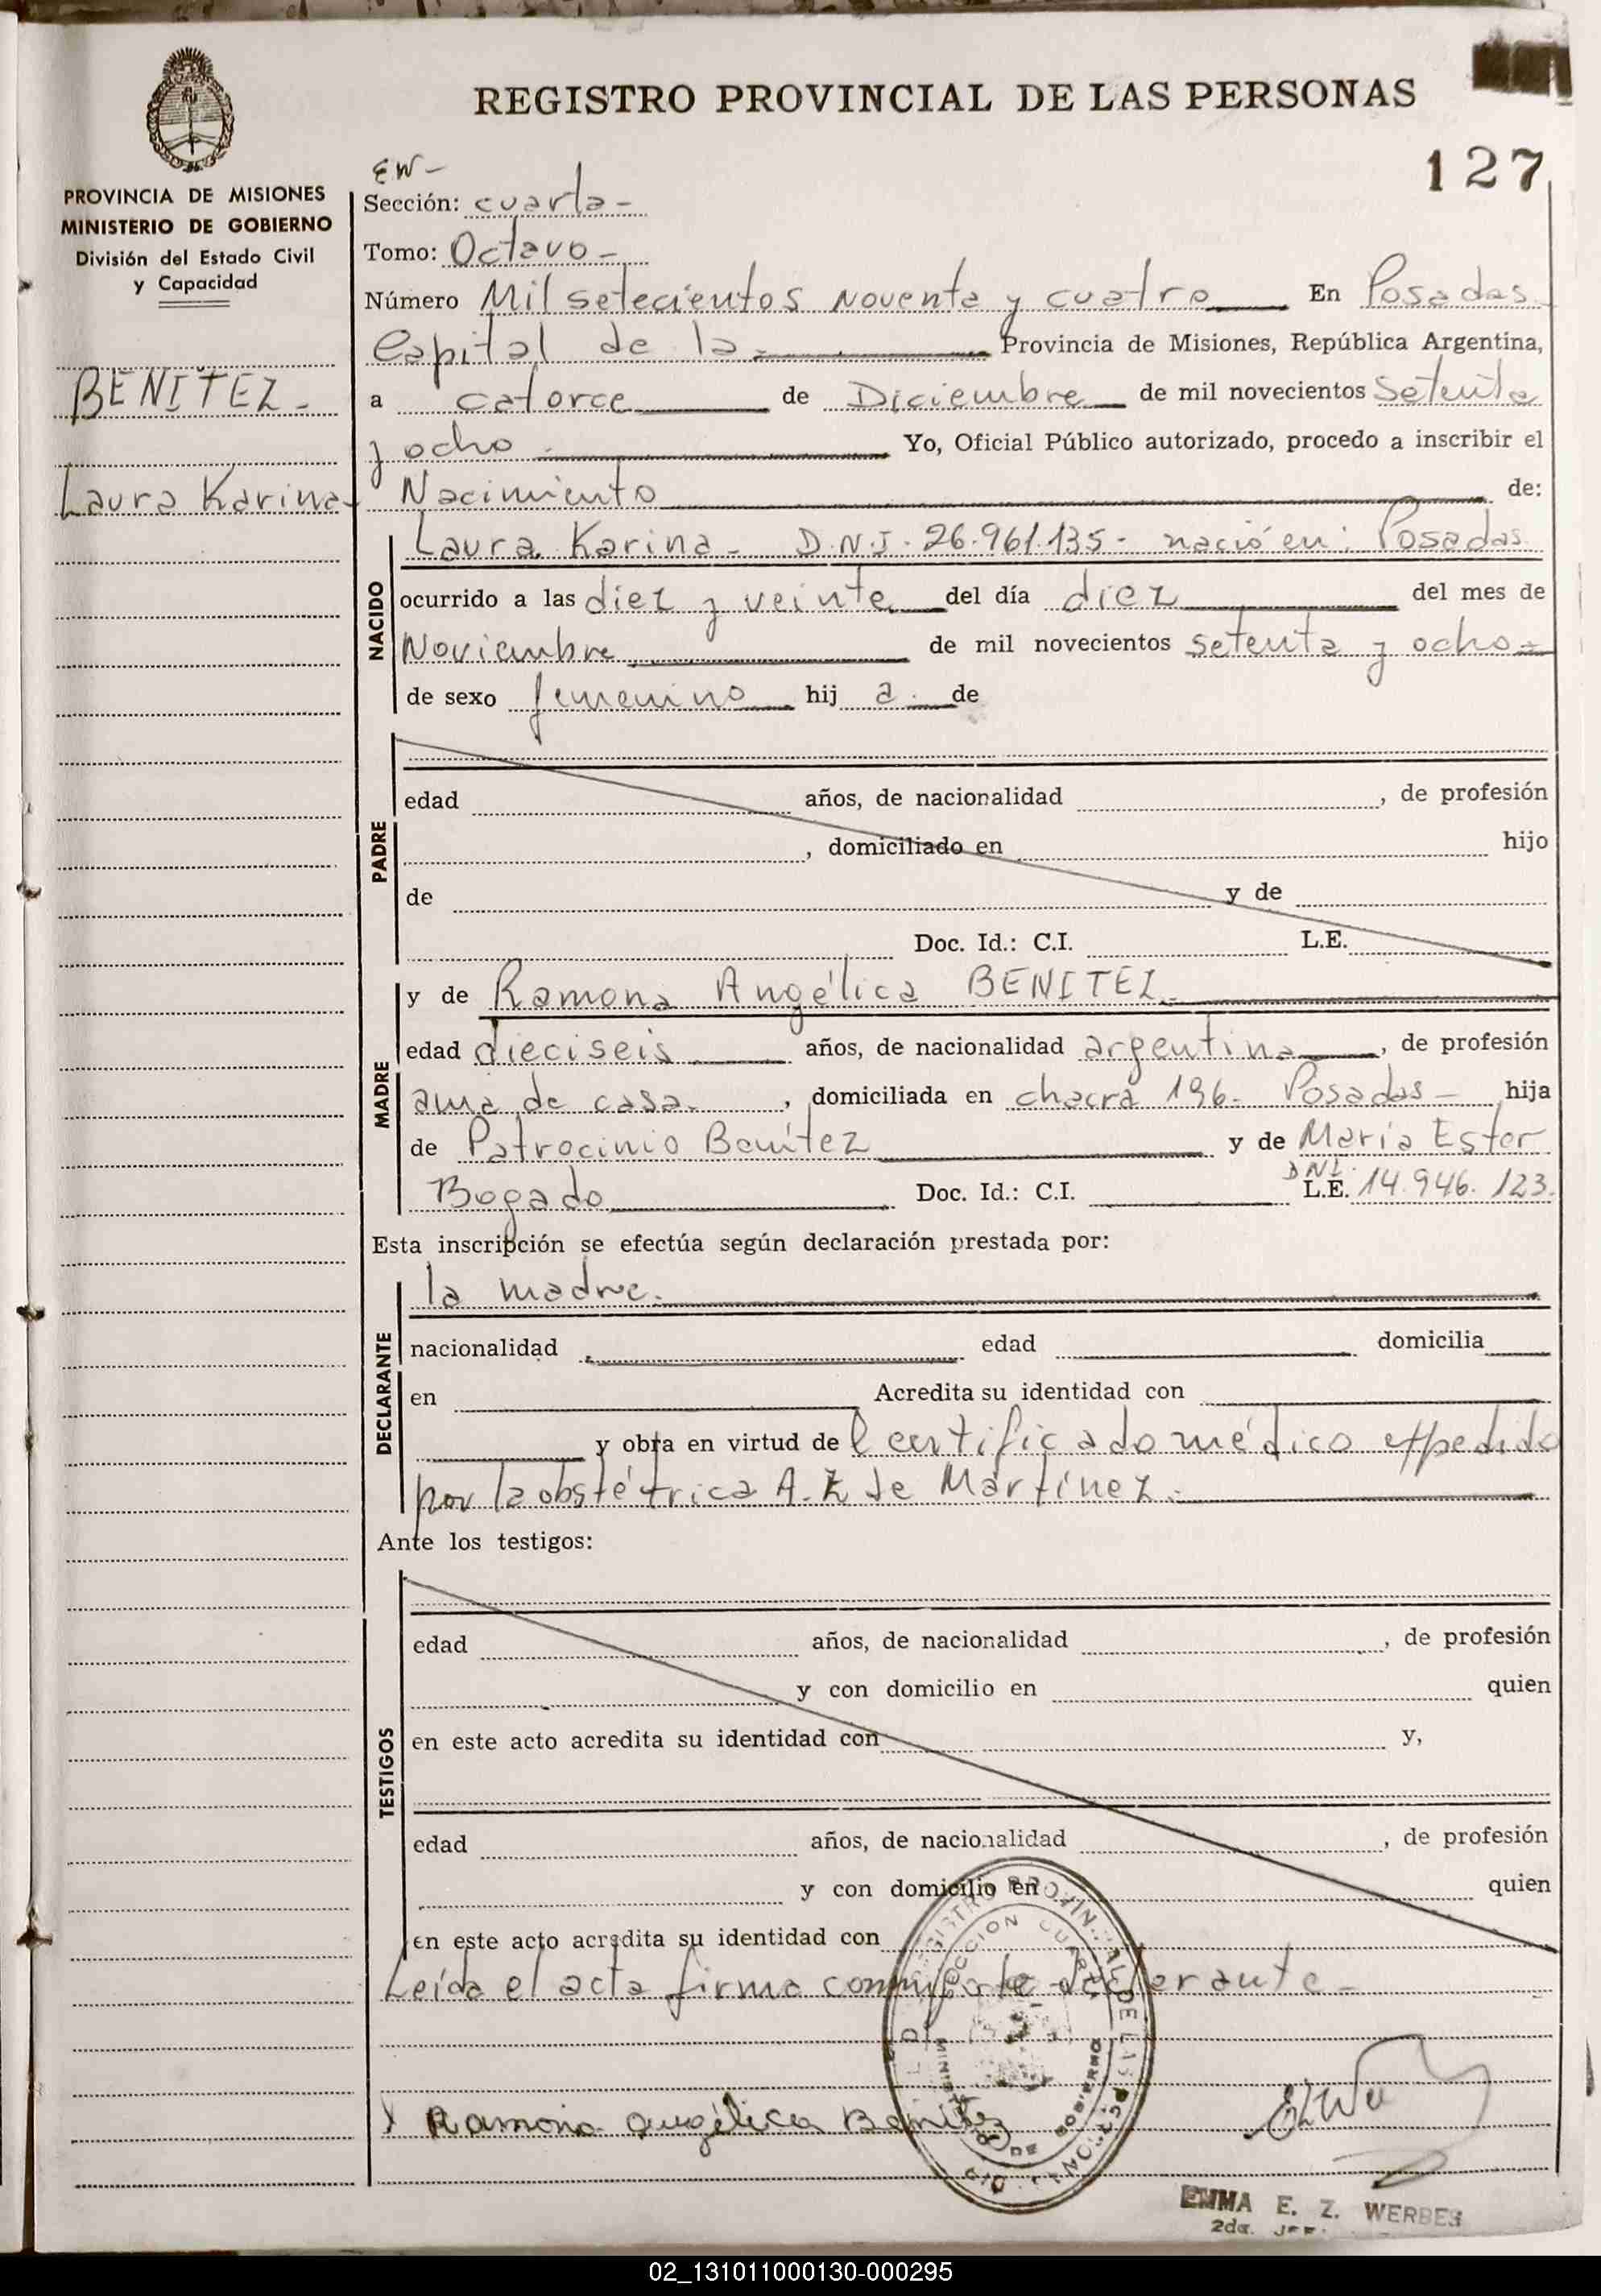 REGISTRO PROVINCIAL DE LAS PERSONAS
127
PROVINCIA DE MISIONES
MINISTERIO DE GOBIERNO
División del Estado Civil
y Capacidad
BENITEZ-
Laura Karina-
EW-
Sección: cuarta-
Tomo: Octavo-
Número Mil setecientos noventa y cuatro En Posadas
Capital de la Provincia de Misiones, República Argentina,
a catorce de Diciembre de mil novecientos setenta
y ocho Yo, Oficial Público autorizado, procedo a inscribir el
Nacimiento de:
NACIDO
Laura Karina- D.N.I. 26.961.135- nació en: Posadas
ocurrido a las diez y veinte del día diez del mes de
Noviembre de mil novecientos setenta y ocho-
de sexo femenino hij a de
PADRE
edad años, de nacionalidad , de profesión
, domiciliado en hijo
de y de
Doc. Id.: C.I. L.E.
MADRE
y de Ramona Angélica BENITEZ-
edad dieciseis años, de nacionalidad argentina, de profesión
ama de casa- , domiciliada en chacra 196- Posadas- hija
de Patrocinio Benítez y de María Ester
Bogado Doc. Id.: C.I. DNI. L.E. 14.946.123.
Esta inscripción se efectúa según declaración prestada por:
DECLARANTE
la madre.
nacionalidad edad domicilia
en Acredita su identidad con
y obra en virtud del certificado médico expedido
por la obstétrica A. Z de Martínez.
Ante los testigos:
TESTIGOS
edad años, de nacionalidad , de profesión
y con domicilio en quien
en este acto acredita su identidad con y,
edad años, de nacionalidad , de profesión
y con domicilio en quien
en este acto acredita su identidad con
Leída el acta firma conmigo la declarante-
REGISTRO PROVINCIAL DE LAS PERSONAS
SECCION CUARTA
MINISTERIO DE GOBIERNO
Ramona Angélica Benítez
EMMA E. Z. WERBES
2da. JEF.
02_131011000130-000295